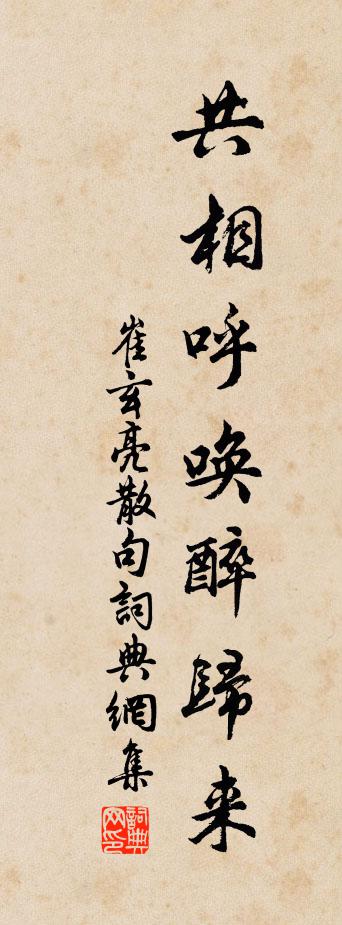 共相呼唤醉歸来
崔玄亮散句詞典網集
詞典网印